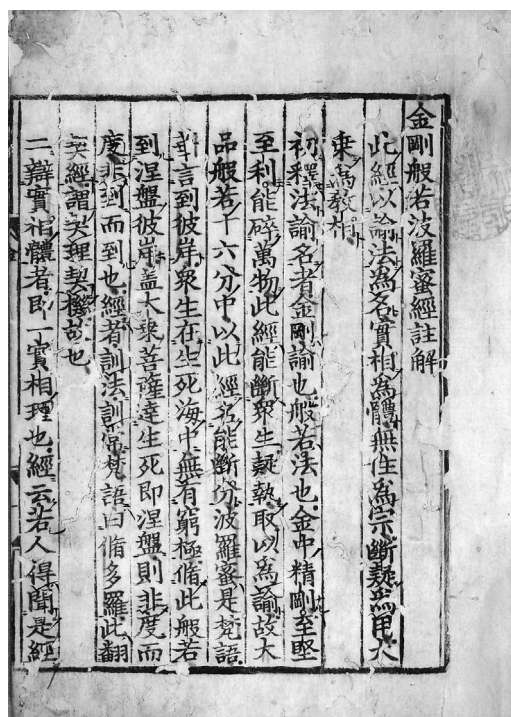 金剛般若波羅蜜經註解
此經以諭法為名實相為體無住為宗斷疑為用大
乘為教相
初釋法諭名者金剛諭也般若法也金中精剛至堅
至利能碎萬物此經能斷衆生疑執取以為諭故大
品般若十六分中以此經名能斷分波羅蜜是梵語
華言到彼岸衆生在生死海中無有窮極脩此般若
到涅盤彼岸蓋大乘菩薩達生死即涅盤則非度而
度非到而到也經者訓法訓常梵語曰脩多羅此翻
契經謂契理契機故也
二辯實相體者即一實相理也經云若人得聞是經